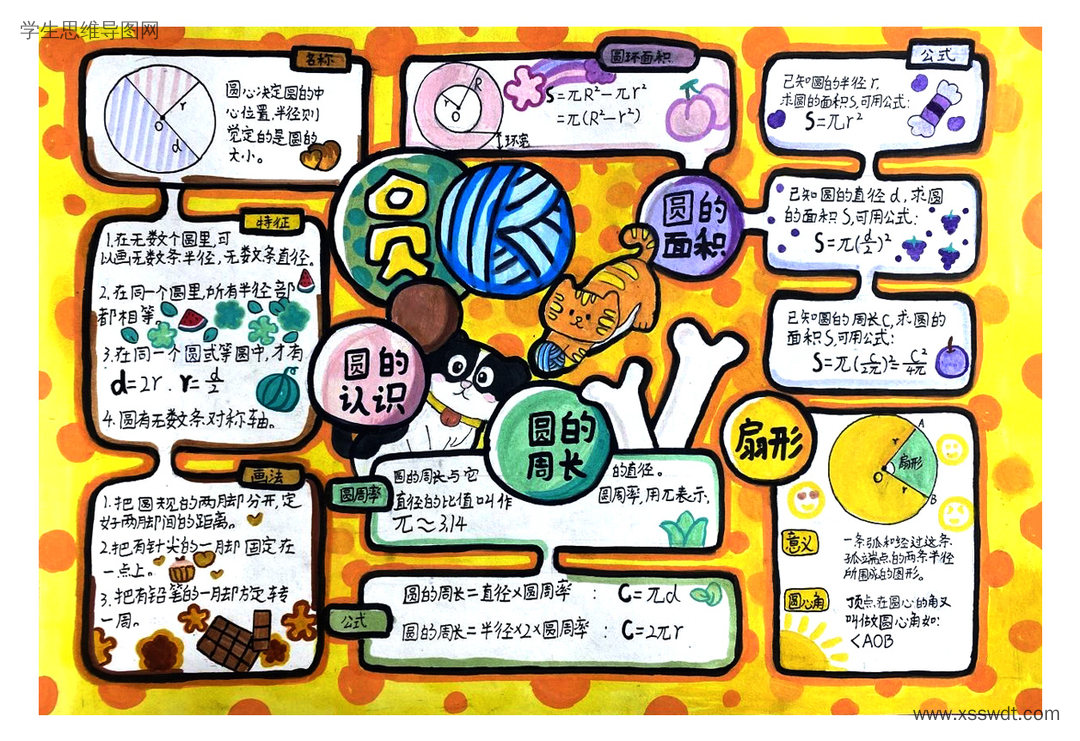 学生思维导图网
名称
圆心决定圆的中
心位置,半径则
觉定的是圆的
大小。
r
O
d
圆环面积
R
r
O
环宽
S=πR²-πr²
=π(R²-r²)
公式
已知圆的半径r.
求圆的面积S,可用公式:
S=πr²
已知圆的直径d,求圆
的面积S,可用公式:
S=π(d/2)²
已知圆的周长C,求圆的
面积S,可用公式:
S=π(C/2π)²=C²/4π
圆
圆的
面积
特征
1.在无数个圆里,可
以画无数条半径,无数条直径。
2.在同一个圆里,所有半径部
都相等
3.在同一个圆式等圆中,才有
d=2r . r=d/2
4.圆有无数条对称轴。
圆的
认识
画法
1.把圆规的两脚分开,定
好两脚间的距离。
2.把有针尖的一脚固定在
一点上。
3.把有铅笔的一脚旋转
一周。
圆的
周长
圆周率
圆的周长与它的直径。
直径的比值叫作圆周率,用π表示,
π≈3.14
公式
圆的周长=直径×圆周率 : C=πd
圆的周长=半径×2×圆周率 : C=2πr
扇形
A
r
扇形
O
r
B
意义
一条弧和经过这条
弧端点的两条半径
所围成的图形。
圆心角
顶点在圆心的角又
叫做圆心角如:
<AOB
www.xsswdt.com